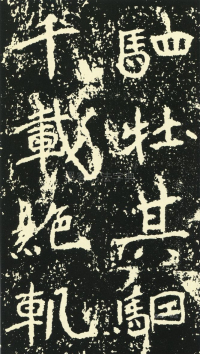 駟牡其駰
千載絶軌